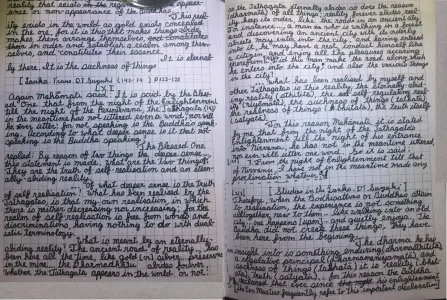 reality that exists in the
ance or non-appearance of the Buddhas.
This real-
ity exists in the world as gold exists concealed
in the ore, for it is this that makes things
themselves, and constitutes
their reason among them-
selves, and constitutes their essence.
It is eternal-
ly there. It is the suchness of things.
[Lanka. Trans. D.T. Suzuki (142-144)
[LXI]
Again Mahāmati said: It is said by the Bless-
ed One that from the night of the Enlightenment
till the night of the Parinirvana, the Tathagata
in the meantime has not uttered even a word, nor will
he ever utter; for not-speaking is the Buddha's speak-
ing. According to what deeper sense is it that not-
speaking is the Buddha's speaking?
The Blessed One
replied: By reason of two things of the deeper sense,
this statement is made. What are the two things?
They are the truth of self-realisation and an eter-
nally-abiding reality.
Of what deeper sense is the truth
of self-realisation? What has been realised by the
Tathagatas, that is my own realisation, in which
there is neither decreasing nor increasing; for the
realm of self-realisation is free from words and
discriminations, having nothing to do with dual-
istic terminology.
What is meant by an eternally-
abiding reality? The ancient road of reality, has
been here all the time, like gold, silver, preserve
in the mine. The Dharmadhatu abides forever,
whether the Tathagata appears in the world or not;
as the Tathagata eternally abides so does the reason
of all things; reality forever abides, real-
ity keeps its order, like the roads in an ancient city.
For instance, a man who is walking in a forest
and discovering an ancient city with its orderly
streets may enter into the city, and having entered
into it, he may have a rest, conduct himself like
a citizen, and enjoy all the pleasures accruing
therefrom. Did this man make the road along which
he enters into the city? and also the various things
in the city?
What has been realised by myself and
other Tathagatas is this reality, the eternally-abid-
ing reality the self-regulating reality
(niyamata), the suchness of things (tathata),
the realness of things (bhutata), the truth itself
(satyata).
For this reason Mahamati, it is stated
by me that from the night of the Tathagata's
Enlightenment till the night of his entrance
into Nirvana, he has not in the meantime uttered,
nor ever will utter, one word. So it is said:
From the night of Enlightenment till that
of Nirvana, I have not in the meantime made any
proclamation whatever.
Studies in the Lanka. D.T. Suzuki
Therefore, when the Bodhisattvas or Buddhas attain
to realisation, the experience is not something
altogether new to them. Like walking into an old
once known and quietly enjoys. The
Buddha did not create these things, they have
been here from the beginning.
The dharma he has
insight into is something enduring (dharmasthitita)
suchness of things (tathata), it is reality (bhutata), it is
truth (satyata). For this reason the Buddha
declared that ever since the night
refer to this important declaration